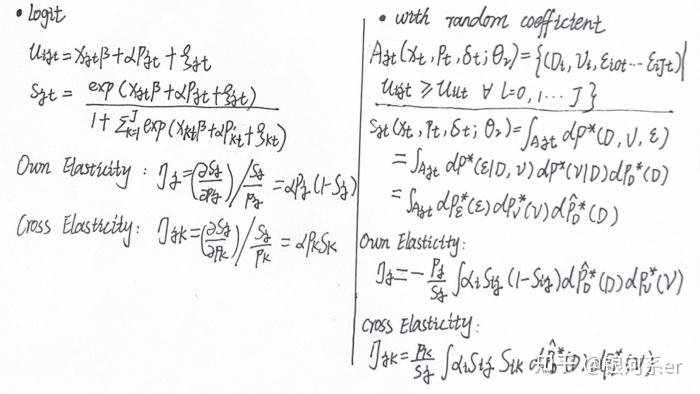 • Logit
u_{ijt} = x_{jt}β + αp_{jt} + ξ_{jt}
s_{jt} = \frac{exp(x_{jt}β + αp_{jt} + ξ_{jt})}{1 + Σ_{k=1}^{J} exp(x_{kt}β + αp_{kt} + ξ_{kt})}
Own Elasticity: η_j = (\frac{∂s_j}{∂p_j}) / \frac{s_j}{p_j} = αp_j(1-s_j)
Cross Elasticity: η_{jk} = (\frac{∂s_j}{∂p_k}) / \frac{s_j}{p_k} = αp_k s_k
• with random coefficient
A_{jt}(x_t, p_t, δ_t; θ_2) = {(D_i, v_i, ε_{i0t} ... ε_{iJt}) |
u_{ijt} ≥ u_{ilt} ∀ l=0,1,...J}
s_{jt}(x_t, p_t, δ_t; θ_2) = ∫_{A_{jt}} dp*(D, v, ε)
= ∫_{A_{jt}} dp*(ε|D, v) dp*(v|D) dp_D*(D)
= ∫_{A_{jt}} dp_ε*(ε) dp_v*(v) d\hat{p}_D*(D)
Own Elasticity:
η_j = -\frac{p_j}{s_j} ∫α_i s_{ij}(1-s_{ij}) d\hat{p}_D*(D) dp_v*(v)
Cross Elasticity:
η_{jk} = \frac{p_k}{s_j} ∫α_i s_{ij} s_{ik} d\hat{p}_D*(D) dp_v*(v)
知乎 @银河系er